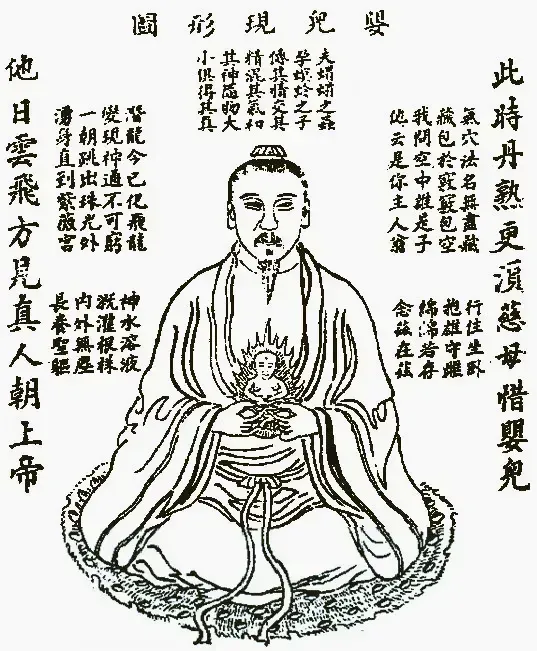 嬰兒現形圖
此時丹熟更須慈母惜嬰兒
夫蜾蠃之蟲
孕螟蛉之子
傳其情交其
精混其氣和
其神隨物大
小俱得其真
氣穴法名無盡藏
藏包於竅竅包空
我問空中誰是子
他云是你主人翁
行住坐臥
抱雄守雌
綿綿若存
念茲在茲
潛龍今已化飛龍
變現神通不可窮
一朝跳出珠光外
湧身直到紫微宮
神水溶液
溉灌根株
內外無塵
長養聖軀
他日雲飛方見真人朝上帝